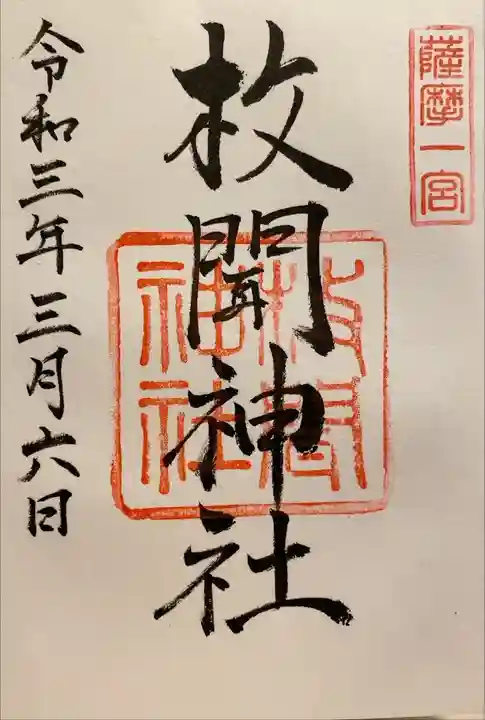 薩摩一宮
枚聞神社
枚聞神社
令和三年三月六日